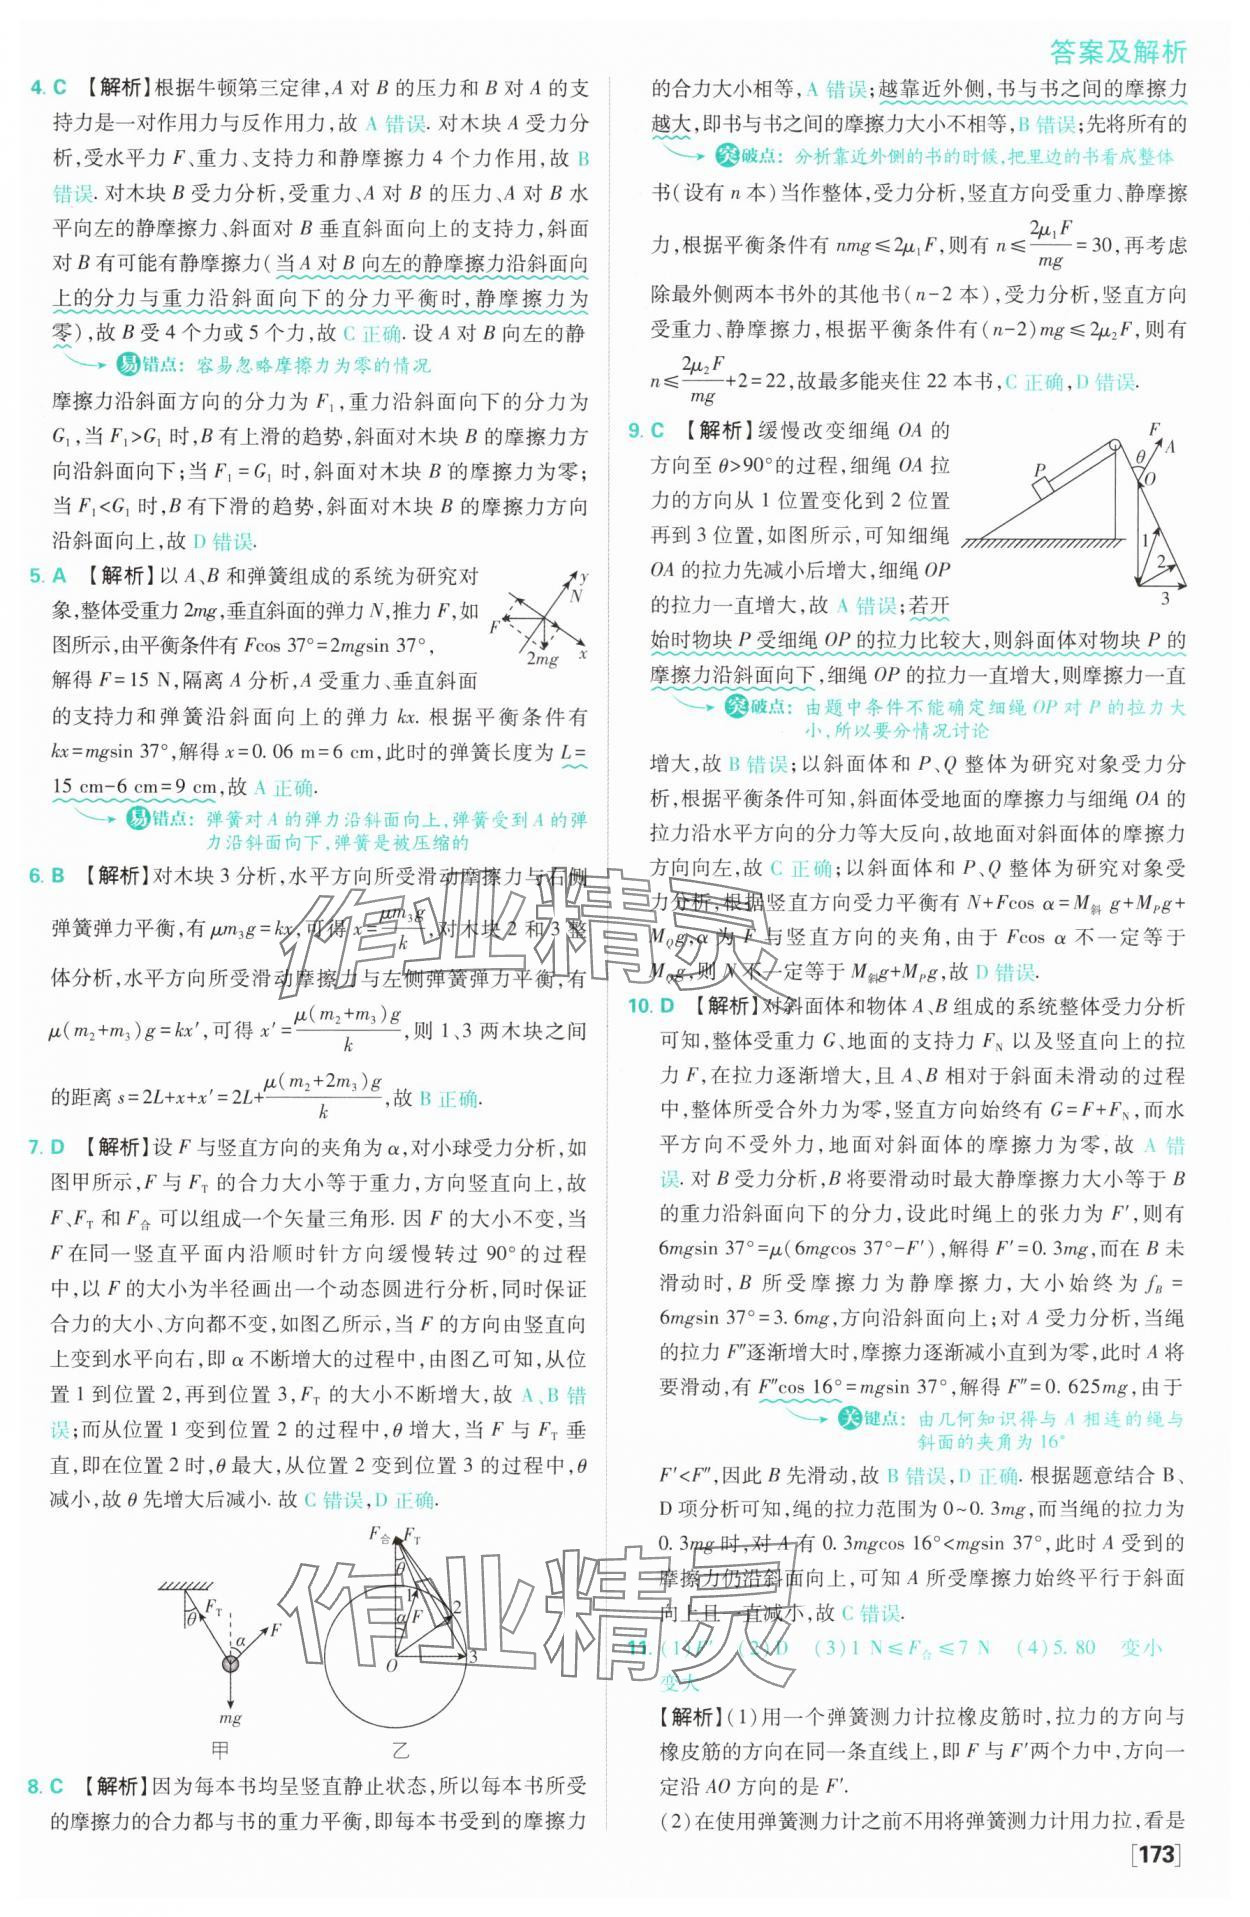 答案及解析
4. C 【解析】根据牛顿第三定律,A 对 B 的压力和 B 对 A 的支
持力是一对作用力与反作用力,故 A 错误. 对木块 A 受力分
析,受水平力 F、重力、支持力和静摩擦力 4 个力作用,故 B
错误. 对木块 B 受力分析,受重力、A 对 B 的压力、A 对 B 水
平向左的静摩擦力、斜面对 B 垂直斜面向上的支持力,斜面
对 B 有可能有静摩擦力(当 A 对 B 向左的静摩擦力沿斜面向
上的分力与重力沿斜面向下的分力平衡时,静摩擦力为
零),故 B 受 4 个力或 5 个力,故 C 正确. 设 A 对 B 向左的静
易错点：容易忽略摩擦力为零的情况
摩擦力沿斜面方向的分力为 F₁,重力沿斜面向下的分力为
G₁,当 F₁>G₁ 时,B 有上滑的趋势,斜面对木块 B 的摩擦力方
向沿斜面向下;当 F₁=G₁ 时,斜面对木块 B 的摩擦力为零;
当 F₁<G₁ 时,B 有下滑的趋势,斜面对木块 B 的摩擦力方向
沿斜面向上,故 D 错误.
5. A 【解析】以 A、B 和弹簧组成的系统为研究对
象,整体受重力 2mg,垂直斜面的弹力 N,推力 F,如
图所示,由平衡条件有 Fcos 37°=2mgsin 37°,
解得 F=15 N,隔离 A 分析,A 受重力、垂直斜面
的支持力和弹簧沿斜面向上的弹力 kx. 根据平衡条件有
kx=mgsin 37°,解得 x=0.06 m=6 cm,此时的弹簧长度为 L=
15 cm-6 cm=9 cm,故 A 正确.
y
N
F
2mg
x
易错点：弹簧对 A 的弹力沿斜面向上,弹簧受到 A 的弹
力沿斜面向下,弹簧是被压缩的
6. B 【解析】对木块 3 分析,水平方向所受滑动摩擦力与右侧
弹簧弹力平衡,有 μm₃g=kx,可得 x=μm₃g/k,对木块 2 和 3 整
体分析,水平方向所受滑动摩擦力与左侧弹簧弹力平衡,有
μ(m₂+m₃)g=kx′,可得 x′=μ(m₂+m₃)g/k,则 1、3 两木块之间
的距离 s=2L+x+x′=2L+μ(m₂+2m₃)g/k,故 B 正确.
7. D 【解析】设 F 与竖直方向的夹角为 α,对小球受力分析,如
图甲所示,F 与 F_T 的合力大小等于重力,方向竖直向上,故
F、F_T 和 F合 可以组成一个矢量三角形. 因 F 的大小不变,当
F 在同一竖直平面内沿顺时针方向缓慢转过 90°的过程
中,以 F 的大小为半径画出一个动态圆进行分析,同时保证
合力的大小、方向都不变,如图乙所示,当 F 的方向由竖直向
上变到水平向右,即 α 不断增大的过程中,由图乙可知,从位
置 1 到位置 2,再到位置 3,F_T 的大小不断增大,故 A、B 错
误;而从位置 1 变到位置 2 的过程中,θ 增大,当 F 与 F_T 垂
直,即在位置 2 时,θ 最大,从位置 2 变到位置 3 的过程中,θ
减小,故 θ 先增大后减小. 故 C 错误,D 正确.
θ F_T α F mg 甲
F合 F_T θ 1 2 α F O 3 乙
8. C 【解析】因为每本书均呈竖直静止状态,所以每本书所受
的摩擦力的合力都与书的重力平衡,即每本书受到的摩擦力
的合力大小相等,A 错误;越靠近外侧,书与书之间的摩擦力
越大,即书与书之间的摩擦力大小不相等,B 错误;先将所有的
突破点：分析靠近外侧的书的时候,把里边的书看成整体
书(设有 n 本)当作整体,受力分析,竖直方向受重力、静摩擦
力,根据平衡条件有 nmg≤2μ₁F,则有 n≤2μ₁F/mg=30,再考虑
除最外侧两本书外的其他书(n-2 本),受力分析,竖直方向
受重力、静摩擦力,根据平衡条件有(n-2)mg≤2μ₂F,则有
n≤2μ₂F/mg+2=22,故最多能夹住 22 本书,C 正确,D 错误.
9. C 【解析】缓慢改变细绳 OA 的
方向至 θ>90°的过程,细绳 OA 拉
力的方向从 1 位置变化到 2 位置
再到 3 位置,如图所示,可知细绳
OA 的拉力先减小后增大,细绳 OP
的拉力一直增大,故 A 错误;若开
始时物块 P 受细绳 OP 的拉力比较大,则斜面体对物块 P 的
摩擦力沿斜面向下,细绳 OP 的拉力一直增大,则摩擦力一直
F
A
θ
P
O
1
2
3
突破点：由题中条件不能确定细绳 OP 对 P 的拉力大
小,所以要分情况讨论
增大,故 B 错误;以斜面体和 P、Q 整体为研究对象受力分
析,根据平衡条件可知,斜面体受地面的摩擦力与细绳 OA 的
拉力沿水平方向的分力等大反向,故地面对斜面体的摩擦力
方向向左,故 C 正确;以斜面体和 P、Q 整体为研究对象受
力分析,根据竖直方向受力平衡有 N+Fcos α=M斜 g+M_Pg+
M_Qg,α 为 F 与竖直方向的夹角,由于 Fcos α 不一定等于
M_Qg,则 N 不一定等于 M斜g+M_Pg,故 D 错误.
10. D 【解析】对斜面体和物体 A、B 组成的系统整体受力分析
可知,整体受重力 G、地面的支持力 F_N 以及竖直向上的拉
力 F,在拉力逐渐增大,且 A、B 相对于斜面未滑动的过程
中,整体所受合外力为零,竖直方向始终有 G=F+F_N,而水
平方向不受外力,地面对斜面体的摩擦力为零,故 A 错
误. 对 B 受力分析,B 将要滑动时最大静摩擦力大小等于 B
的重力沿斜面向下的分力,设此时绳上的张力为 F′,则有
6mgsin 37°=μ(6mgcos 37°-F′),解得 F′=0.3mg,而在 B 未
滑动时,B 所受摩擦力为静摩擦力,大小始终为 f_B=
6mgsin 37°=3.6mg,方向沿斜面向上;对 A 受力分析,当绳
的拉力 F″逐渐增大时,摩擦力逐渐减小直到为零,此时 A 将
要滑动,有 F″cos 16°=mgsin 37°,解得 F″=0.625mg,由于
关键点：由几何知识得与 A 相连的绳与
斜面的夹角为 16°
F′<F″,因此 B 先滑动,故 B 错误,D 正确. 根据题意结合 B、
D 项分析可知,绳的拉力范围为 0~0.3mg,而当绳的拉力为
0.3mg 时,对 A 有 0.3mgcos 16°<mgsin 37°,此时 A 受到的
摩擦力仍沿斜面向上,可知 A 所受摩擦力始终平行于斜面
向上且一直减小,故 C 错误.
11. (1)F′ (2)D (3)1 N≤F合≤7 N (4)5.80 变小
变大
【解析】(1)用一个弹簧测力计拉橡皮筋时,拉力的方向与
橡皮筋的方向在同一条直线上,即 F 与 F′两个力中,方向一
定沿 AO 方向的是 F′.
(2)在使用弹簧测力计之前不用将弹簧测力计用力拉,看是
[173]
作业精灵
作业精灵